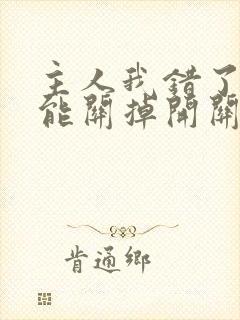 主人我錯了
能關掉開關
肯通鄉